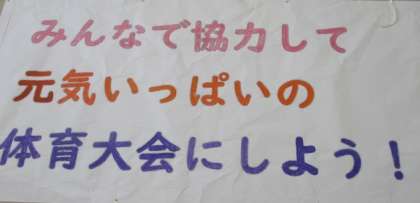 みんなで協力して
元気いっぱいの
体育大会にしよう！